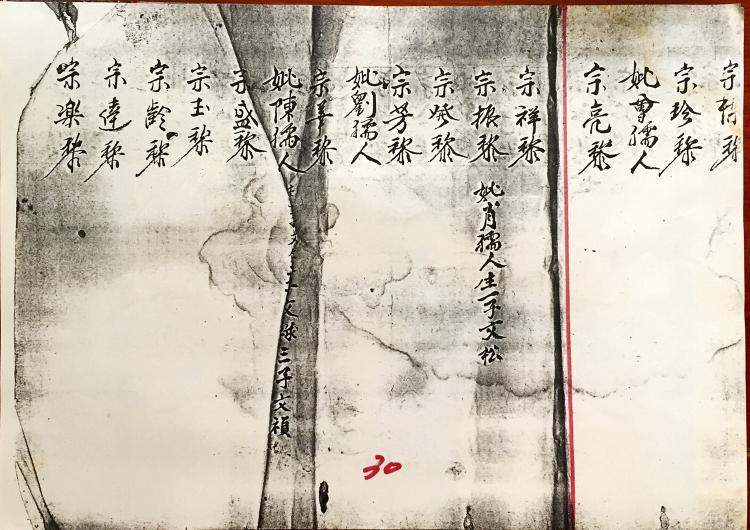 宗
宗珍黎
妣孺人
宗亮黎
宗祥黎
宗振黎 妣肖孺人生一子文松
宗黎
宗芳黎
妣劉孺人
宗黎
妣陳孺人 三子文禎
宗盛黎
宗玉黎
宗齡黎
宗達黎
宗樂黎
30